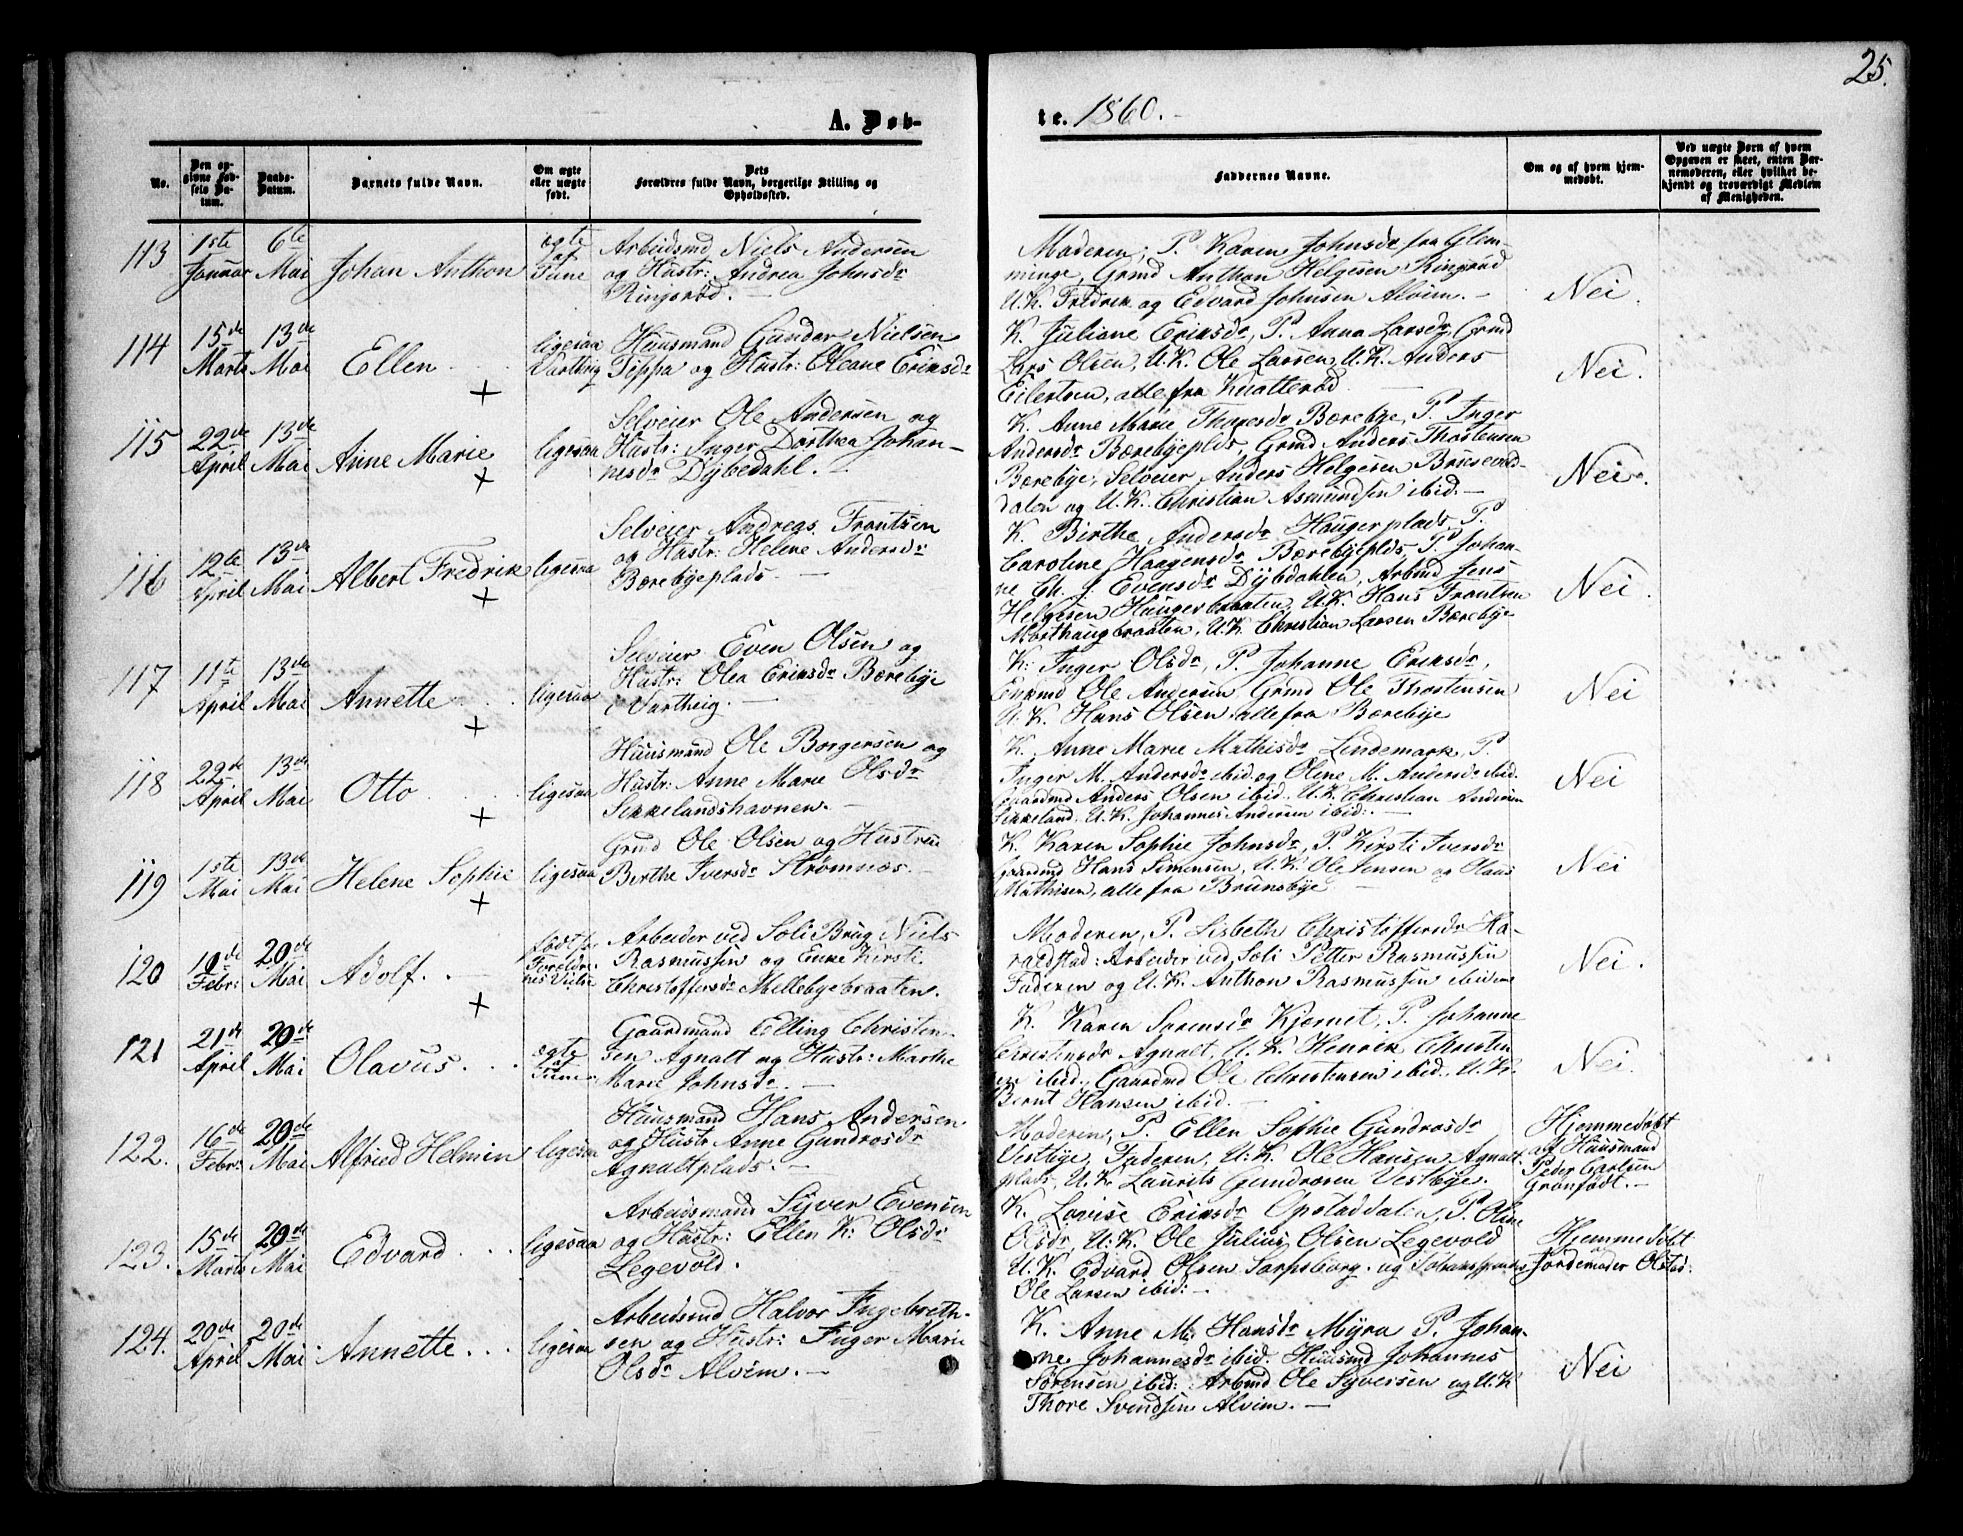 25.
A. Døb-
te. 1860. -
No.
Den op-
givne Fød-
sels Da-
tum.
Daabs-
Datum.
Barnets fulde Navn.
Om ægte
eller uægte
født.
Dets
Forældres fulde Navn, borgerlige Stilling og
Opholdssted.
Faddernes Navne.
Om og af hvem hjem-
medøbt.
Ved uægte Børn af hvem
Opgaven er skeet, enten Bar-
nemoderen, eller hvilket be-
kjendt og troværdigt Medlem
af Menigheden.
113
1ste
Januar
6te
Mai
Johan Anthon
ægte
af
Tune
Arbeidsmd Niels Andersen
og Hustr: Andrea Johnsdr
Ringsrød. -
Moderen, P. Karen Johnsdr fra Glem-
minge, Grmd Anthon Helgesen Ringsrød
U.K. Fredrik og Edvard Johnsen Alvim. -
Nei.
114
15de
Marts
13de
Mai
Ellen
+
ligesaa
Varteig
Huusmand Gunder Nielsen
Tippa og Hustr: Oleane Eriksdr
K. Juliane Eriksdr, P. Anna Larsdr, Grmd
Lars Olsen, U.K. Ole Larsen, U.K. Anders
Eilertsen, alle fra Knatterød
Nei.
115
22de
April
13de
Mai
Anne Marie
+
ligesaa
Selveier Ole Andersen og
Hustr: Inger Dorthea Johan-
nesdr Dybedahl.
K. Anne Marie Thoresdr Bærebye, P. Inger
Andersdr Bærebyeplds, Grmd Anders Thostensen
Bærebye, Selveier Anders Helgesen
dalen og U.K. Christian Asmundsen ibid. -
Nei.
116
12te
April
13de
Mai
Albert Fredrik
+
ligesaa
Selveier Andreas Frantsen
og Hustr: Helene Andersdr
Bærebyeplads. -
K. Birthe Andersdr Haugerplads, P.
Caroline Haagensdr Bærebyeplds, P. Johan-
ne Ch. J. Evensdr Dybdahlen, Arbmd Jens
Helgesen Haugerbraaten, U.K. Hans Frantsen
Morthaugbraaten, U.K. Christian Larsen Bærebye
Nei.
117
11te
April
13de
Mai
Annette
+
ligesaa
Selveier Even Olsen og
Hustr: Olea Eriksdr Bærebye
i Varteig. -
K: Inger Olsdr, P. Johanne Eriksdr,
Ole Andersen Grmd Ole Thostensen
U.K. Hans Olsen alle fra Bærebye
Nei
118
22de
April
13de
Mai
Otto
+
ligesaa
Huusmand Ole Borgersen og
Hustr: Anne Marie Olsdr
Sikkelandshavnen. -
K. Anne Marie Mathisdr Lindemark, P.
Inger M. Andersdr ibid. og Oline M. Andersdr ibid.
Gaardmd Anders Olsen ibid. U.K. Christian Andersen
Sikkeland. U.K. Johannes Andersen ibid:. -
Nei
119
1ste
Mai
13de
Mai
Helene Sophie
+
ligesaa
Grmd Ole Olsen og Hustrue
Berthe Iversdr Strømnæs. -
K. Karen Sophie Johnsdr, P. Kirsti Iversdr
Gaardmd Hans Simensen, U.K. Ole Jensen og Hans
Mathisen, alle fra Brunsbye
Nei
120
10de
Febr:
20de
Mai
Adolf. . -
+
født
Foreldre-
nes
Arbeider ved Soli Brug Niels
Rasmussen og Enke Kirsti
Christoffersdr Mellebyebraaten.
Moderen, P. Lisbeth Christoffersdr Ha-
raldstad: Arbeider ved Soli Petter Rasmussen
Faderen og U.K. Anthon Rasmussen ibidem
Nei.
121
21de
April
20de
Mai
Olavus.
ægte
af
Tune
Gaardmand Elling Christen-
sen Agnalt og Hustr: Marthe
Marie Johnsdr. -
K. Karen Sørensdr Kjernet, P. Johanne
Christensdr Agnalt, U.K. Henrik Christen
en ibid., Gaardmd Ole Christensen ibid., U.K.
Bernt Hansen ibid. -
Nei.
122.
16de
Febr:
20de
Mai
Alfried Helmin
ligesaa
Huusmand Hans Andersen
og Hustr Anne Gundrosdr
Agnaltplads. -
Moderen, P. Ellen Sophie Gundrosdr
Vestbye, Faderen, U.K. Ole Hansen Agnalt-
plads, U.K. Laurits Gundrosen Vestbye.
Hjemmedøbt
af Huusmand
Peder Carlsen
Grønfödt. -
123.
15de
Marts
20de
Mai
Edvard
ligesaa
Arbeidsmand Syver Evensen
og Hustr: Ellen K: Olsdr
Legevold.
K. Lovise Eriksdr Opstaddalen, P. Oline
Olsdr U.K. Ole Julius Olsen Legevold
U.K. Edvard Olsen Sarpsborg. og
Ole Larsen ibid: -
Hjemmedøbt
af
Jordemoder Olstad:
124.
20de
April
20de
Mai
Annette. . .
ligesaa
Arbeidsmd Halvor Ingebreth-
sen og Hustr: Inger Marie
Olsdr Alvim. -
K. Anne M: Hansdr Myra P. Johan-
ne Johannesdr ibid. Huusmd Johannes
Sørensen ibid:. Arbmd Ole Syversen og U.K
Thore Svendsen Alvim. -
Nei